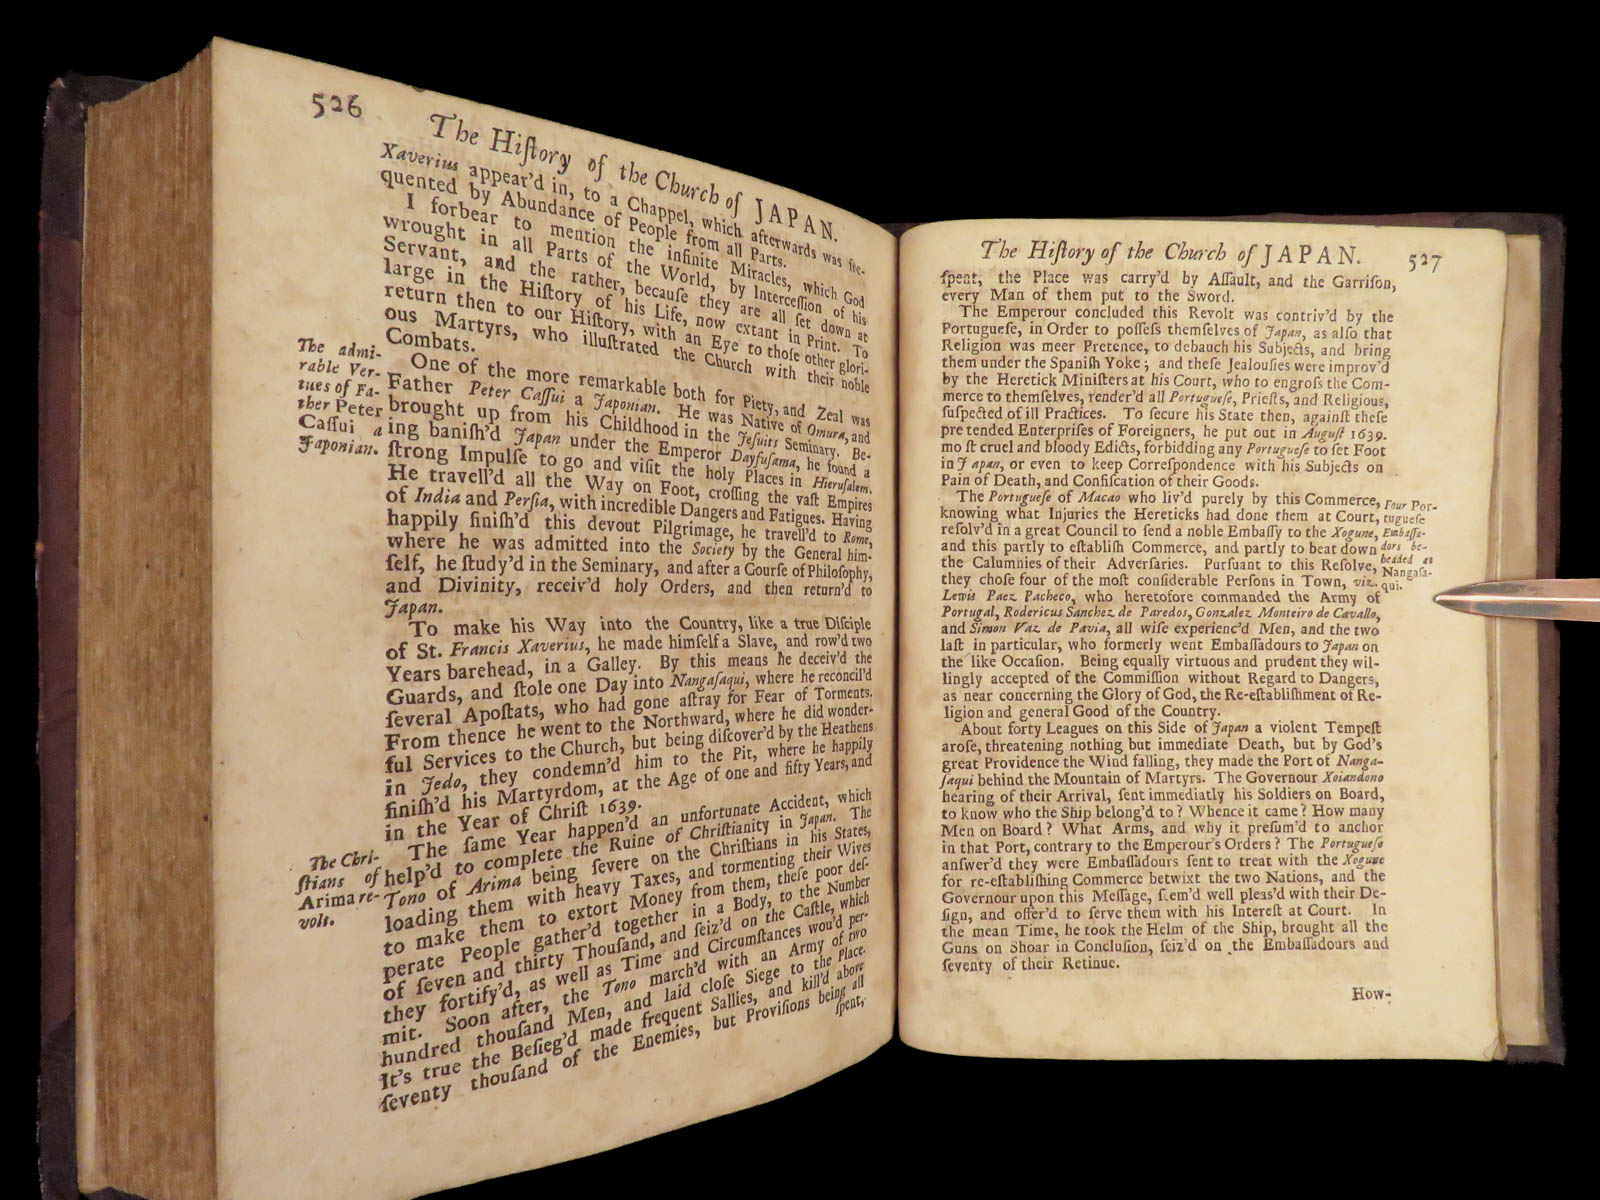 526
The Hiſtory of the Church of JAPAN.
Xaverius appear'd in, to a Chappel, which afterwards was fre-
quented by Abundance of People from all Parts.
I forbear to mention the infinite Miracles, which God
wrought in all Parts of the World, by Interceſſion of his
Servant, and the rather, becauſe they are all ſet down at
large in the Hiſtory of his Life, now extant in Print. To
return then to our Hiſtory, with an Eye to thoſe other glori-
ous Martyrs, who illuſtrated the Church with their noble
Combats.
The admi-
rable Ver-
tues of Fa-
ther Peter
Caſſui a
Japonian.
One of the more remarkable both for Piety, and Zeal was
Father Peter Caſſui a Japonian. He was Native of Omura, and
brought up from his Childhood in the Jeſuits Seminary. Be-
ing baniſh'd Japan under the Emperor Dayfuſama, he found a
ſtrong Impulſe to go and viſit the holy Places in Hieruſalem.
He travell'd all the Way on Foot, croſſing the vaſt Empires
of India and Perſia, with incredible Dangers and Fatigues. Having
happily finiſh'd this devout Pilgrimage, he travell'd to Rome,
where he was admitted into the Society by the General him-
ſelf, he ſtudy'd in the Seminary, and after a Courſe of Philoſophy,
and Divinity, receiv'd holy Orders, and then return'd to
Japan.
To make his Way into the Country, like a true Diſciple
of St. Francis Xaverius, he made himſelf a Slave, and row'd two
Years barehead, in a Galley. By this means he deceiv'd the
Guards, and ſtole one Day into Nangaſaqui, where he reconcil'd
ſeveral Apoſtats, who had gone aſtray for Fear of Torments.
From thence he went to the Northward, where he did wonder-
ful Services to the Church, but being diſcover'd by the Heathens
in Jedo, they condemn'd him to the Pit, where he happily
finiſh'd his Martyrdom, at the Age of one and fifty Years, and
in the Year of Chriſt 1639.
The Chri-
ſtians of
Arima re-
volt.
The ſame Year happen'd an unfortunate Accident, which
help'd to complete the Ruine of Chriſtianity in Japan. The
Tono of Arima being ſevere on the Chriſtians in his States,
loading them with heavy Taxes, and tormenting their Wives
to make them to extort Money from them, theſe poor deſ-
perate People gather'd together in a Body, to the Number
of ſeven and thirty Thouſand, and ſeiz'd on the Caſtle, which
they fortify'd, as well as Time and Circumſtances wou'd per-
mit. Soon after, the Tono march'd with an Army of two
hundred thouſand Men, and laid cloſe Siege to the Place.
It's true the Beſieg'd made frequent Sallies, and kill'd above
ſeventy thouſand of the Enemies, but Proviſions being all
ſpent,
The Hiſtory of the Church of JAPAN. 527
ſpent, the Place was carry'd by Aſſault, and the Garriſon,
every Man of them put to the Sword.
The Emperour concluded this Revolt was contriv'd by the
Portugueſe, in Order to poſſeſs themſelves of Japan, as alſo that
Religion was meer Pretence, to debauch his Subjects, and bring
them under the Spaniſh Yoke; and theſe Jealouſies were improv'd
by the Heretick Miniſters at his Court, who to engroſs the Com-
merce to themſelves, render'd all Portugueſe, Prieſts, and Religious,
ſuſpected of ill Practices. To ſecure his State then, againſt theſe
pre tended Enterpriſes of Foreigners, he put out in Auguſt 1639.
mo ſt cruel and bloody Edicts, forbidding any Portugueſe to ſet Foot
in J apan, or even to keep Correſpondence with his Subjects on
Pain of Death, and Confiſcation of their Goods.
The Portugueſe of Macao who liv'd purely by this Commerce,
knowing what Injuries the Hereticks had done them at Court,
reſolv'd in a great Council to ſend a noble Embaſſy to the Xogune,
and this partly to eſtabliſh Commerce, and partly to beat down
the Calumnies of their Adverſaries. Purſuant to this Reſolve,
they choſe four of the moſt conſiderable Perſons in Town, viz.
Lewis Paez Pacheco, who heretofore commanded the Army of
Portugal, Rodericus Sanchez de Paredos, Gonzalez Monteiro de Cavallo,
and Simon Vaz de Pavia, all wiſe experienc'd Men, and the two
laſt in particular, who formerly went Embaſſadours to Japan on
the like Occaſion. Being equally virtuous and prudent they wil-
lingly accepted of the Commiſſion without Regard to Dangers,
as near concerning the Glory of God, the Re-eſtabliſhment of Re-
ligion and general Good of the Country.
Four Por-
tugueſe
Embaſſa-
dors be-
headed at
Nangaſa-
qui.
About forty Leagues on this Side of Japan a violent Tempeſt
aroſe, threatening nothing but immediate Death, but by God's
great Providence the Wind falling, they made the Port of Nanga-
ſaqui behind the Mountain of Martyrs. The Governour Xoiandono
hearing of their Arrival, ſent immediatly his Soldiers on Board,
to know who the Ship belong'd to? Whence it came? How many
Men on Board? What Arms, and why it preſum'd to anchor
in that Port, contrary to the Emperour's Orders? The Portugueſe
anſwer'd they were Embaſſadours ſent to treat with the Xogune
for re-eſtabliſhing Commerce betwixt the two Nations, and the
Governour upon this Meſſage, ſeem'd well pleas'd with their De-
ſign, and offer'd to ſerve them with his Intereſt at Court. In
the mean Time, he took the Helm of the Ship, brought all the
Guns on Shoar in Concluſion, ſeiz'd on the Embaſſadours and
ſeventy of their Retinue.
How-